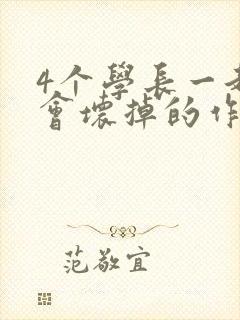 4个學長一
會壞掉的作
范敬宜